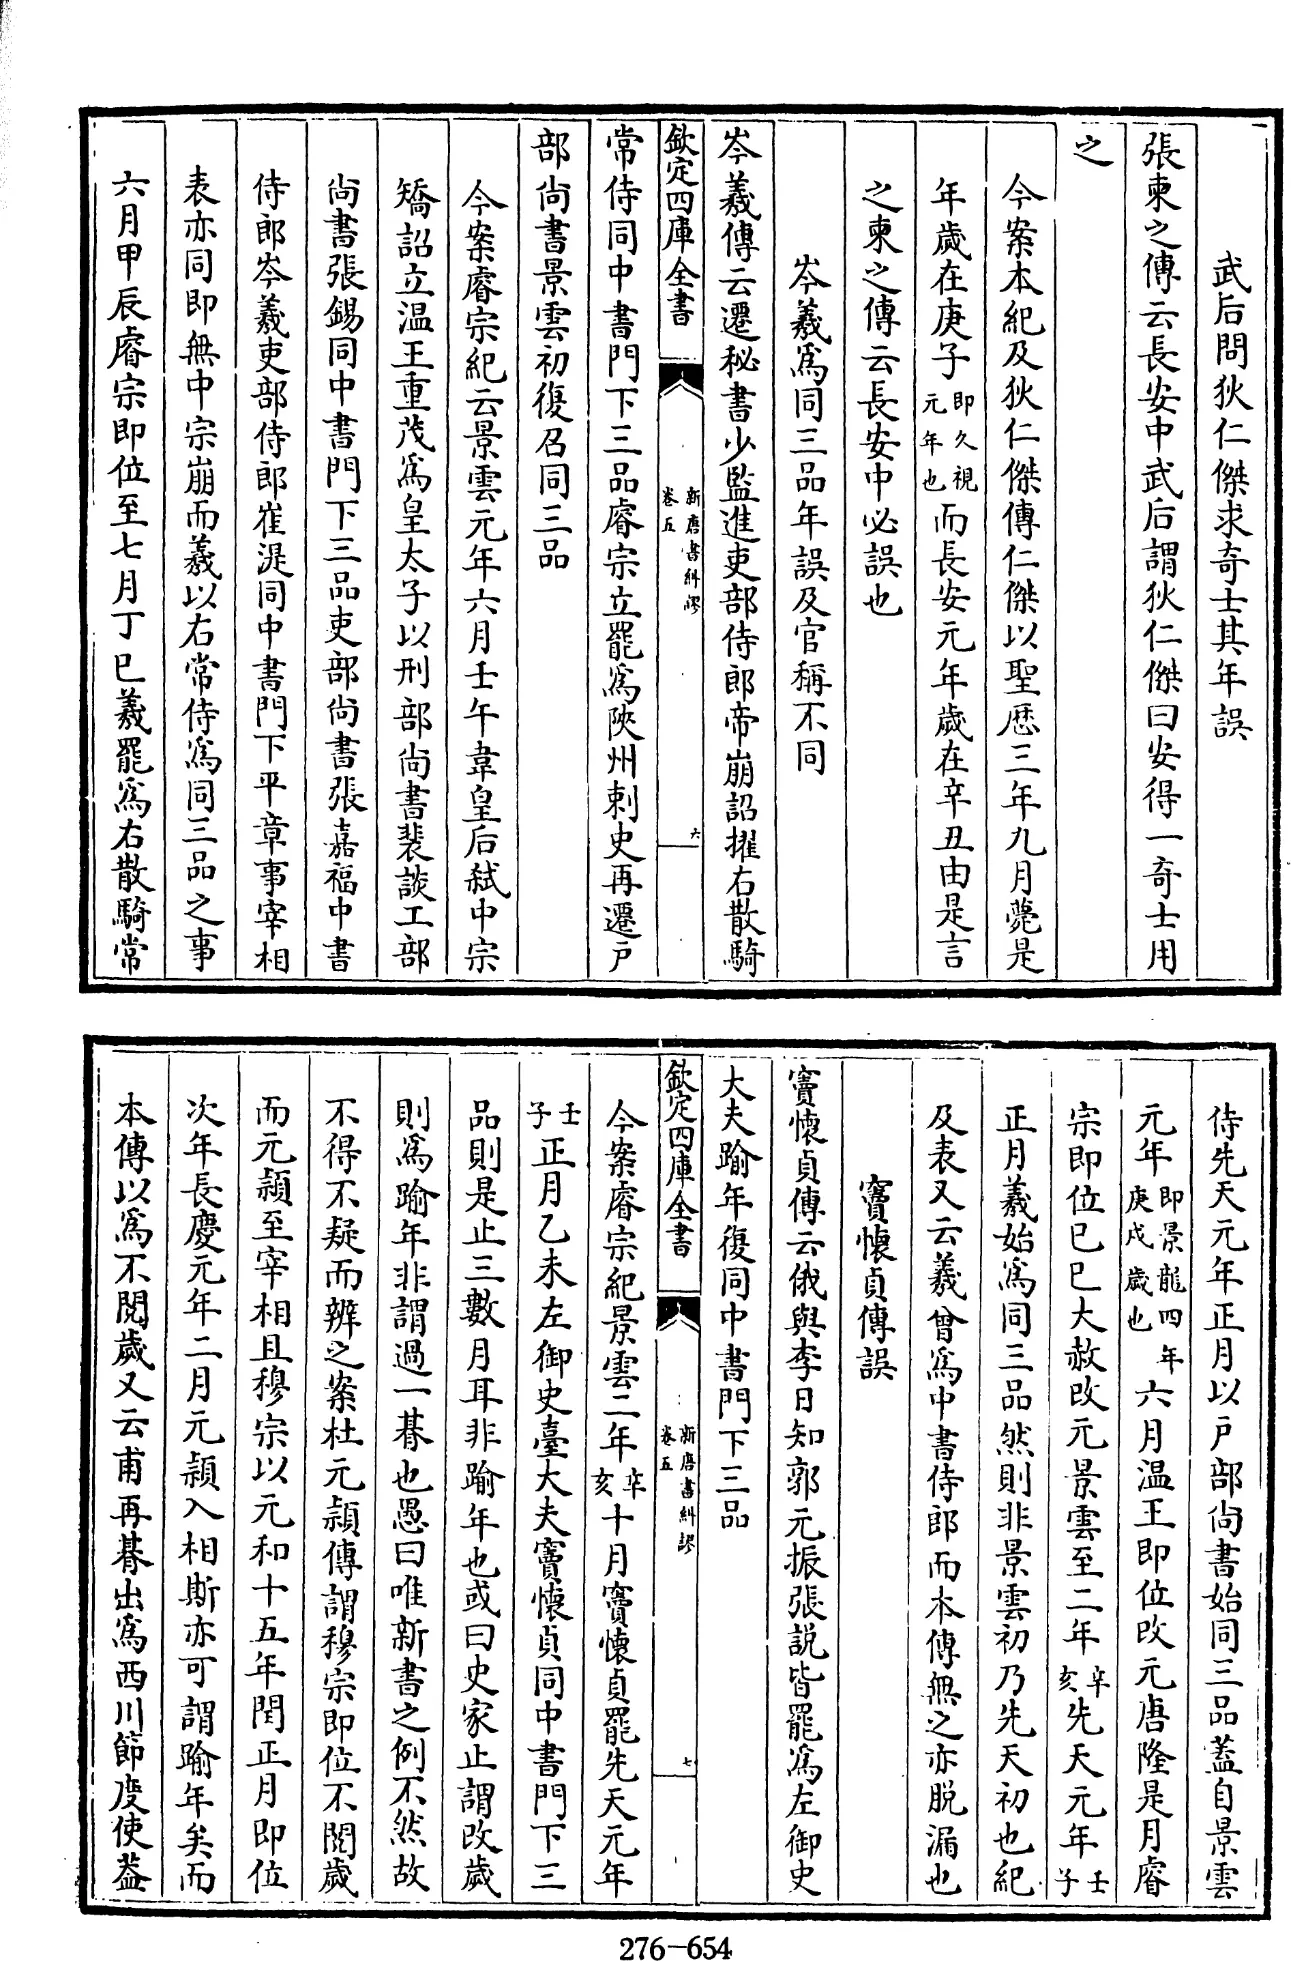 武后問狄仁傑求奇士其年誤
張柬之傳云長安中武后謂狄仁傑曰安得一奇士用
之
今案本紀及狄仁傑傳仁傑以聖厯三年九月薨是
年歲在庚子即久視元年也而長安元年歲在辛丑由是言
之柬之傳云長安中必誤也
岑羲為同三品年誤及官稱不同
岑羲傳云遷秘書少監進吏部侍郎帝崩詔擢右散騎
欽定四庫全書
新唐書糾謬
卷五
六
常侍同中書門下三品睿宗立罷為陜州刺史再遷户
部尚書景雲初復召同三品
今案睿宗紀云景雲元年六月壬午韋皇后弑中宗
矯詔立温王重茂為皇太子以刑部尚書裴談工部
尚書張錫同中書門下三品吏部尚書張嘉福中書
侍郎岑羲吏部侍郎崔湜同中書門下平章事宰相
表亦同即無中宗崩而羲以右常侍為同三品之事
六月甲辰睿宗即位至七月丁巳羲罷為右散騎常
侍先天元年正月以户部尚書始同三品蓋自景雲
元年即景龍四年庚戌歲也六月温王即位改元唐隆是月睿
宗即位已巳大赦改元景雲至二年辛亥先天元年壬子
正月羲始為同三品然則非景雲初乃先天初也紀
及表又云羲曾為中書侍郎而本傳無之亦脱漏也
竇懷貞傳誤
竇懷貞傳云俄與李日知郭元振張説皆罷為左御史
大夫踰年復同中書門下三品
欽定四庫全書
新唐書糾謬
卷五
七
今案睿宗紀景雲二年辛亥十月竇懷貞罷先天元年
壬子正月乙未左御史臺大夫竇懷貞同中書門下三
品則是止三數月耳非踰年也或曰史家止謂改歲
則為踰年非謂過一朞也愚曰唯新書之例不然故
不得不疑而辨之案杜元頴傳謂穆宗即位不閲歲
而元頴至宰相且穆宗以元和十五年閏正月即位
次年長慶元年二月元頴入相斯亦可謂踰年矣而
本傳以為不閲歲又云甫再朞出為西川節度使蓋
276-654